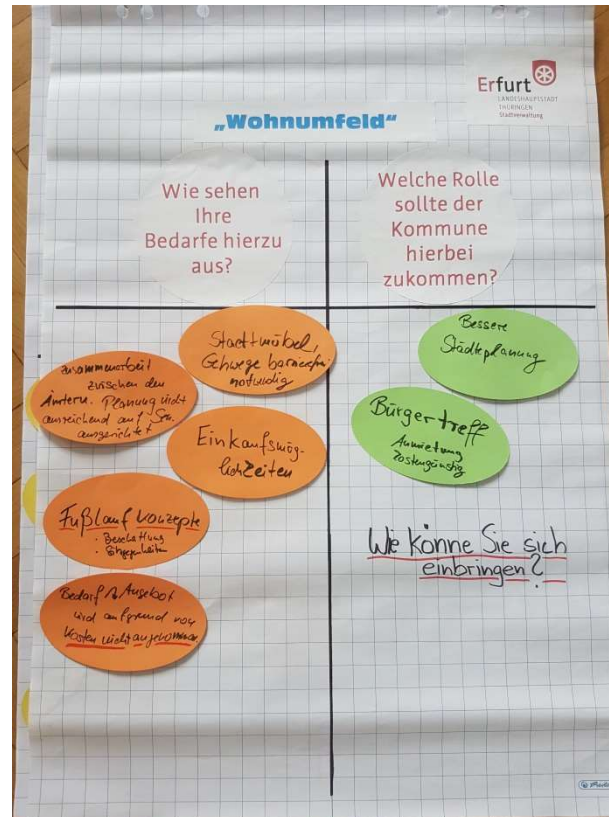 Erfurt
LANDESHAUPTSTADT
THÜRINGEN
Stadtverwaltung
„Wohnumfeld“
Wie sehen
Ihre
Bedarfe hierzu
aus?
Welche Rolle
sollte der
Kommune
hierbei
zukommen?
Stadtmöbel,
Gehwege barrierefrei
notwendig
Zusammenarbeit
zwischen den
Ämtern. Planung nicht
ausreichend auf Sen.
ausgerichtet
Einkaufsmög-
lichkeiten
Fußlaufkonzepte
· Beschattung
· Sitzgelegenheiten
Bedarf Angebot
wird aufgrund von
Kosten nicht angenommen.
Bessere
Städteplanung
Bürgertreff
Anmietung
kostengünstig
Wie könne Sie sich
einbringen?